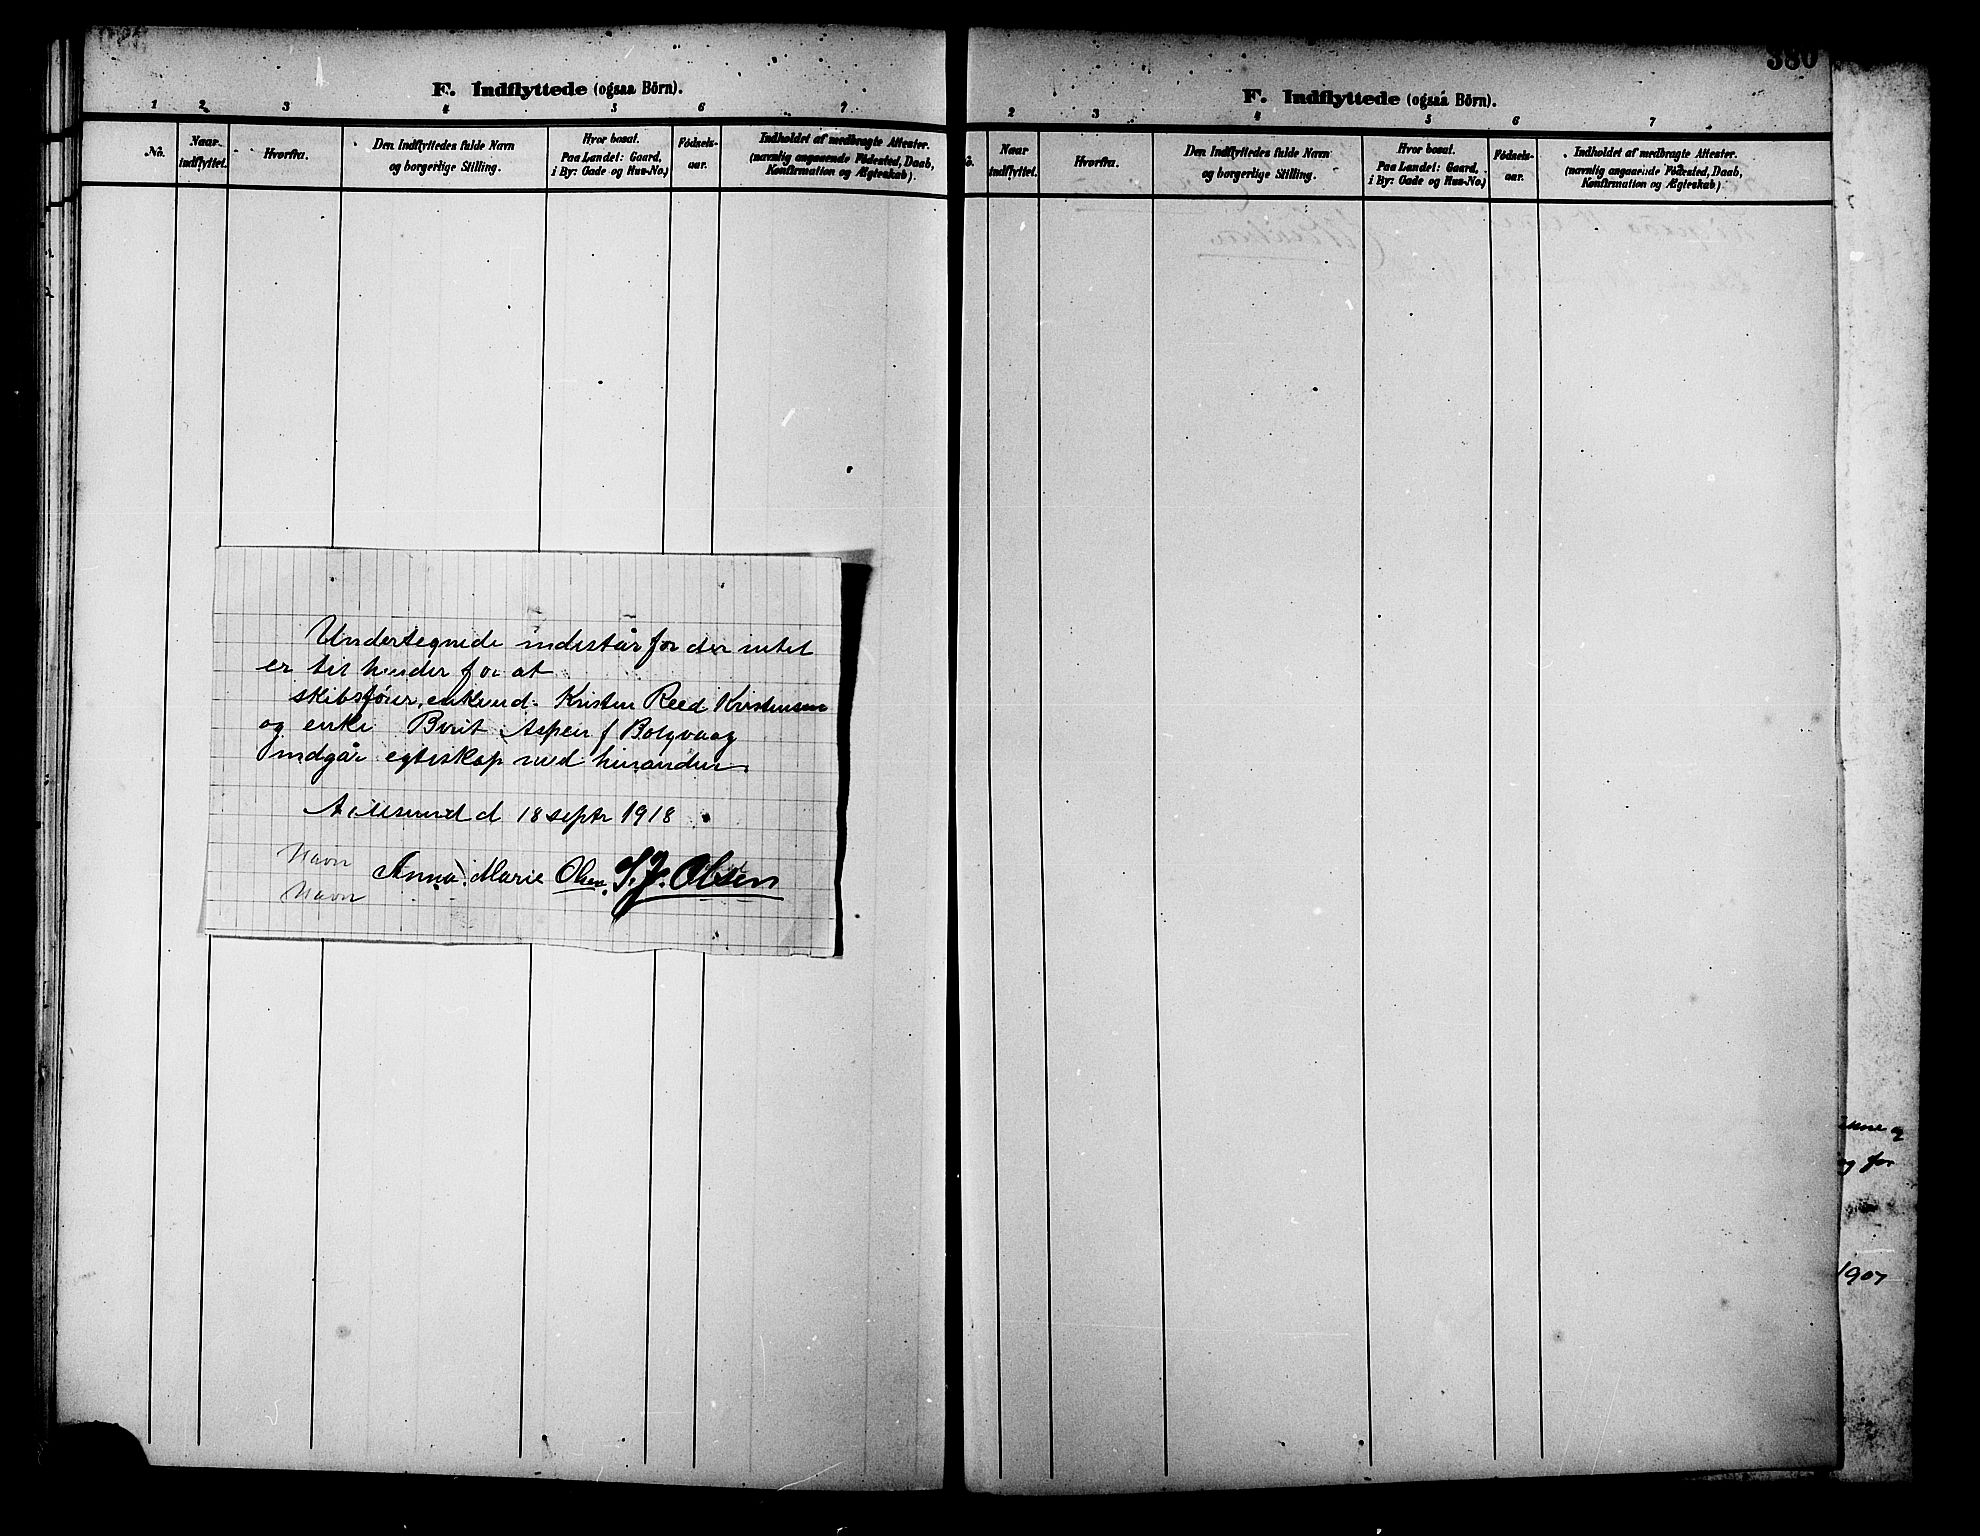 F. Indflyttede (ogsaa Börn).
1 2 3 4 5 6 7
No.
Naar indflyttet.
Hvorfra.
Den Indflyttedes fulde Navn
og borgerlige Stilling.
Hvor bosat.
Paa Landet: Gaard,
i By: Gade og Hus-No.)
Fødsels-
aar.
Indholdet af medbragte Attester.
(navnlig angaaende Fødested, Daab,
Konfirmation og Ægteskab).
Undertegnede indestår for der intet
er til hinder for at
skibsfører, enkemd. Kristen Reed Kristensen
og enke Berit Aspen f Bolgvaag
indgår egteskap med hinanden.
Aalesund d 18 septr 1918
Navn
Anna Marie Olsen. S. J. Olsen
Navn
380
F. Indflyttede (ogsaa Börn).
2 3 4 5 6 7
o.
Naar
indflyttet.
Hvorfra.
Den Indflyttedes fulde Navn
og borgerlige Stilling.
Hvor bosat.
Paa Landet: Gaard,
i By: Gade og Hus-No.)
Fødsels-
aar.
Indholdet af medbragte Attester.
(navnlig angaaende Fødested, Daab,
Konfirmation og Ægteskab).
og for
1907